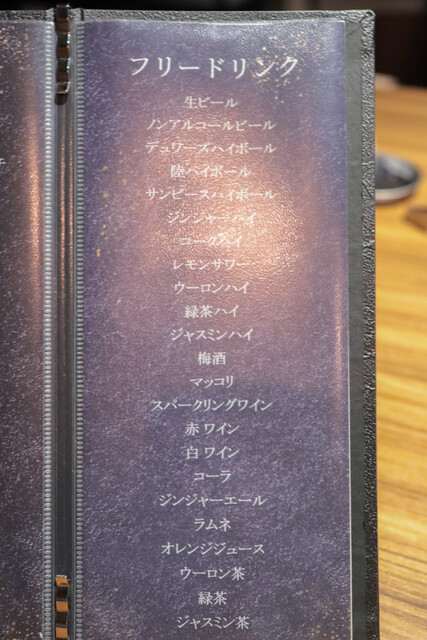 フリードリンク
生ビール
ノンアルコールビール
デュワーズハイボール
陸ハイボール
サンピースハイボール
ジンジャーハイ
コークハイ
レモンサワー
ウーロンハイ
緑茶ハイ
ジャスミンハイ
梅酒
マッコリ
スパークリングワイン
赤ワイン
白ワイン
コーラ
ジンジャーエール
ラムネ
オレンジジュース
ウーロン茶
緑茶
ジャスミン茶